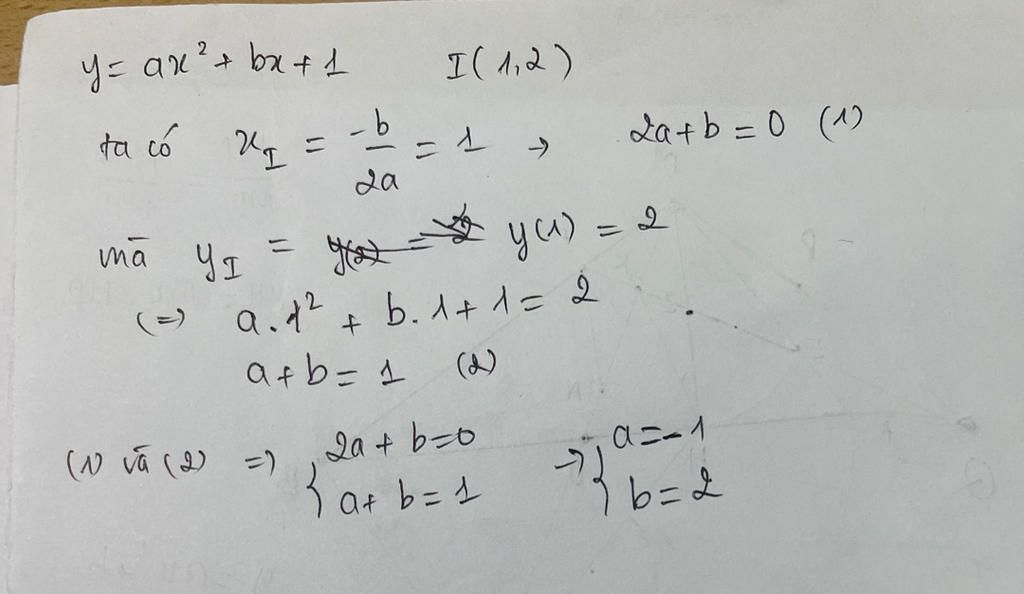 y = ax² + bx + 1 I(1,2)
ta có x_I = -b/2a = 1 → 2a+b = 0 (1)
mà y_I = y(1) = 2
(=) a.1² + b.1 + 1 = 2
a+b = 1 (2)
(1) và (2) => { 2a + b = 0 → { a = -1
a + b = 1 b = 2